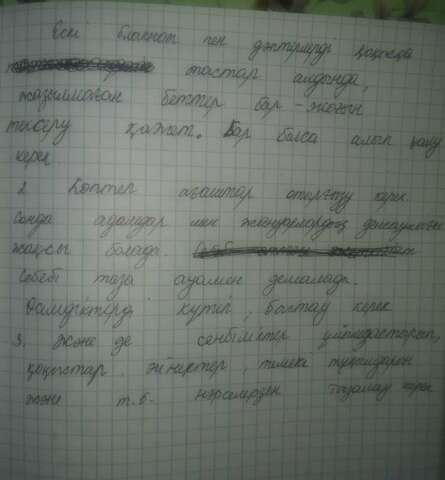 Ескі блакнот пен дәптерлерді қоқысқа
тастар алдында,
жазылмаған беттер бар-жоғын
тексеру қажет. Бар болса алып қалу
керек.
2. Көптеп ағаштар отырғызу керек.
Сонда адамдар мен жануарлардың денсаулығы
жақсы болады.
Себебі таза ауамен демалады.
Өсімдіктерді күтіп, баптау керек
3. Және де сенбіліктер ұйымдастырып,
қоқыстар, әйнектер, темекі тұқылдары
және т.б. нәрселерден тазалау керек